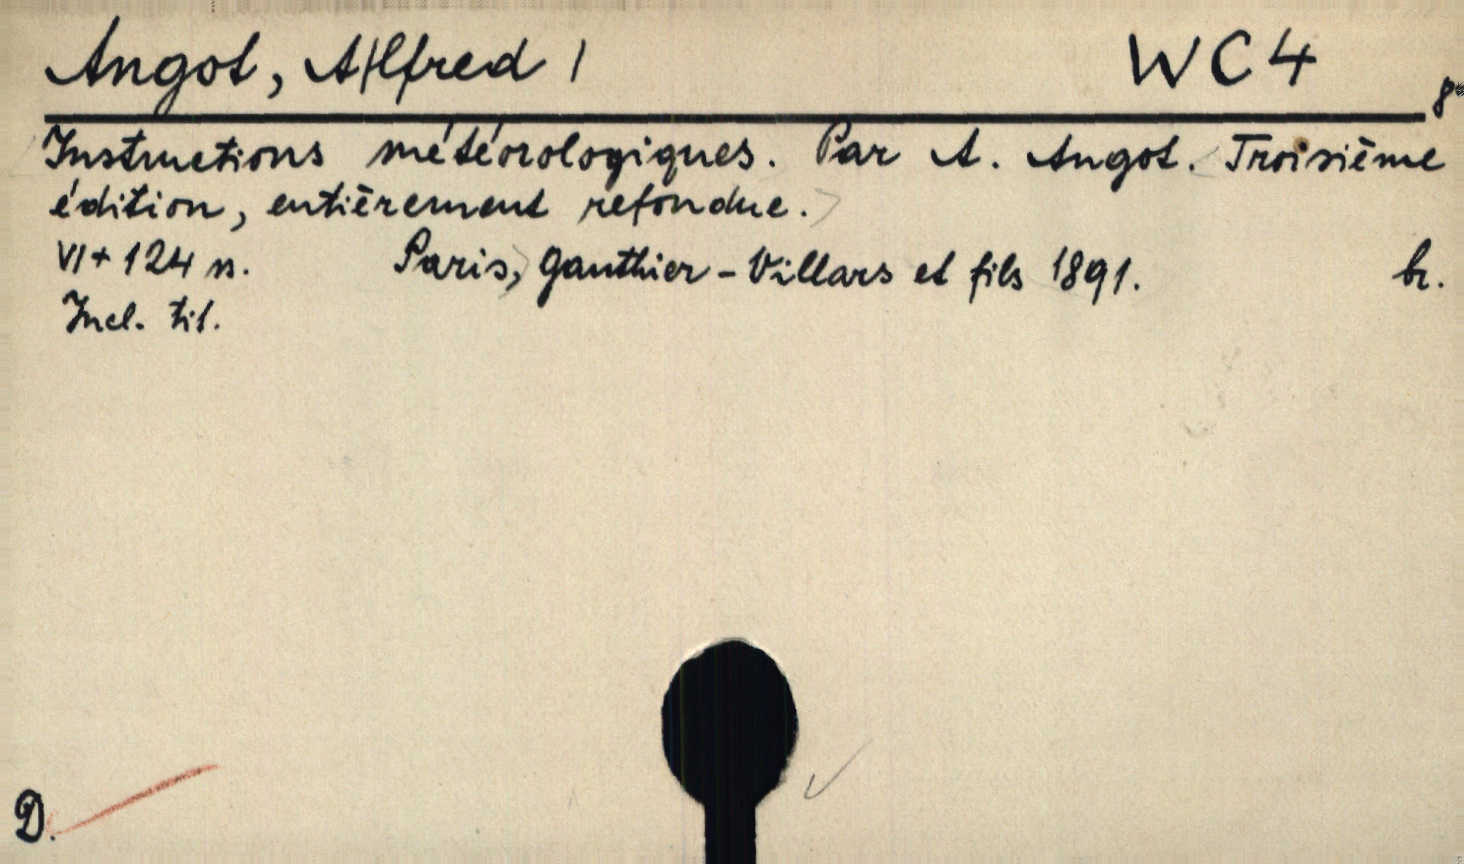 Angot, A(lfred) WC4
8°
Instructions météorologiques. Par A. Angot. Troisième
édition, entièrement refondue.
VI+124 s. Paris, Gauthier-Villars et fils 1891. br.
Incl. tit.
D.